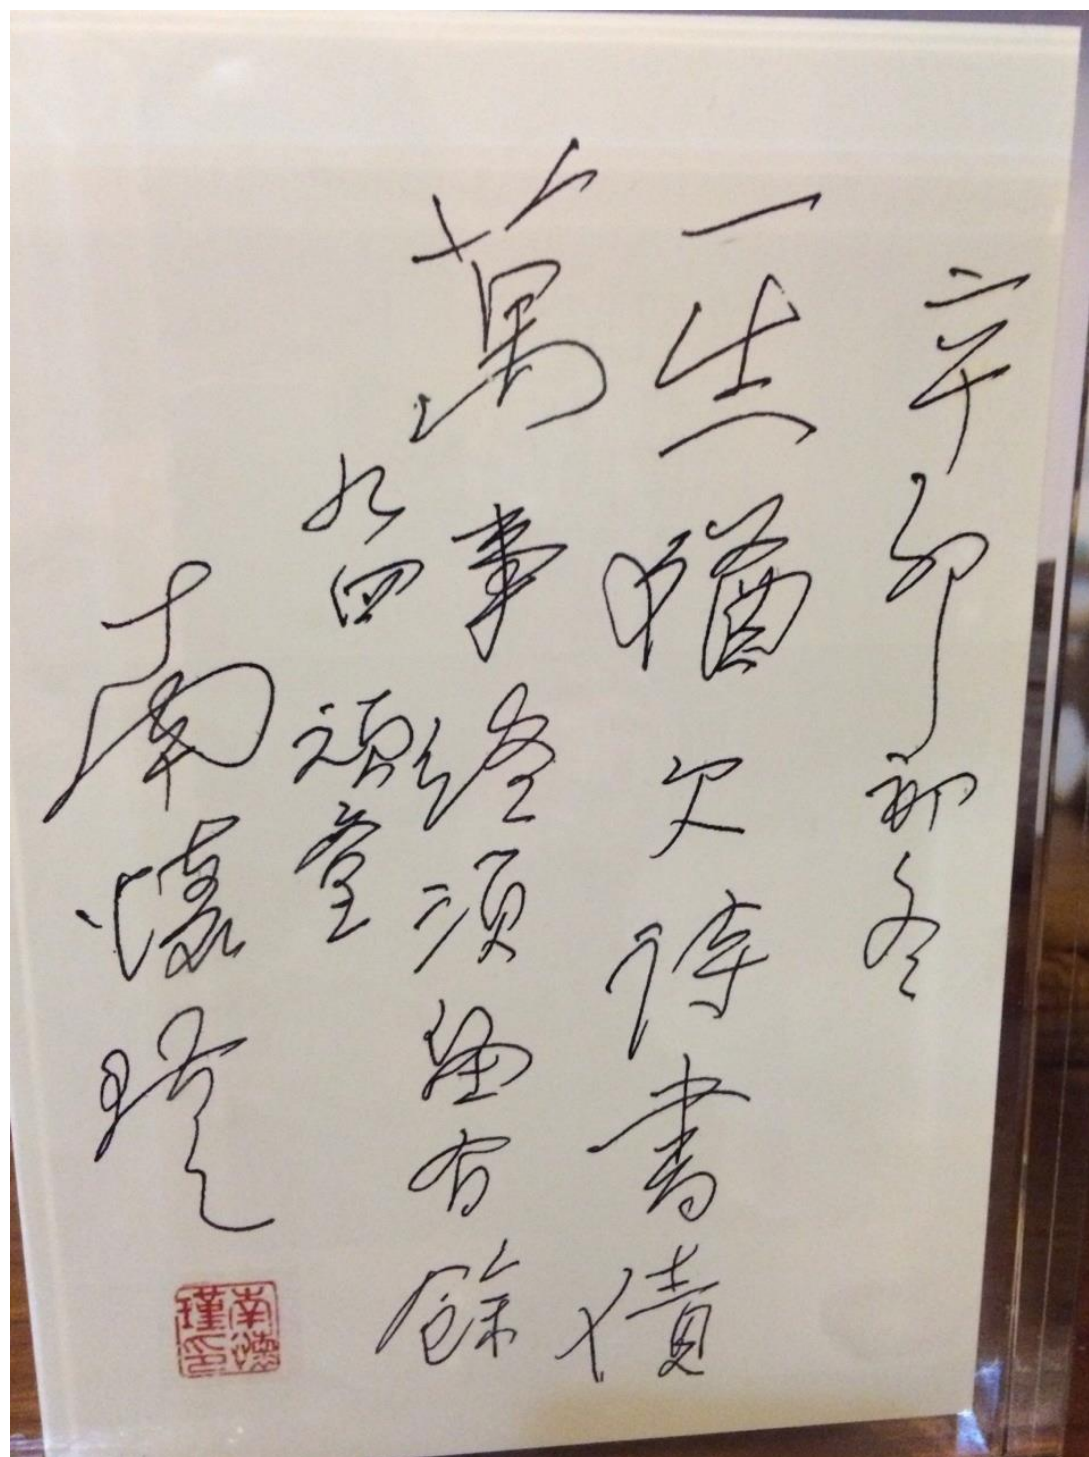 辛卯初冬
一生猶欠待書債
萬事終須留有餘
九四頑童
南懷瑾
南懷瑾印